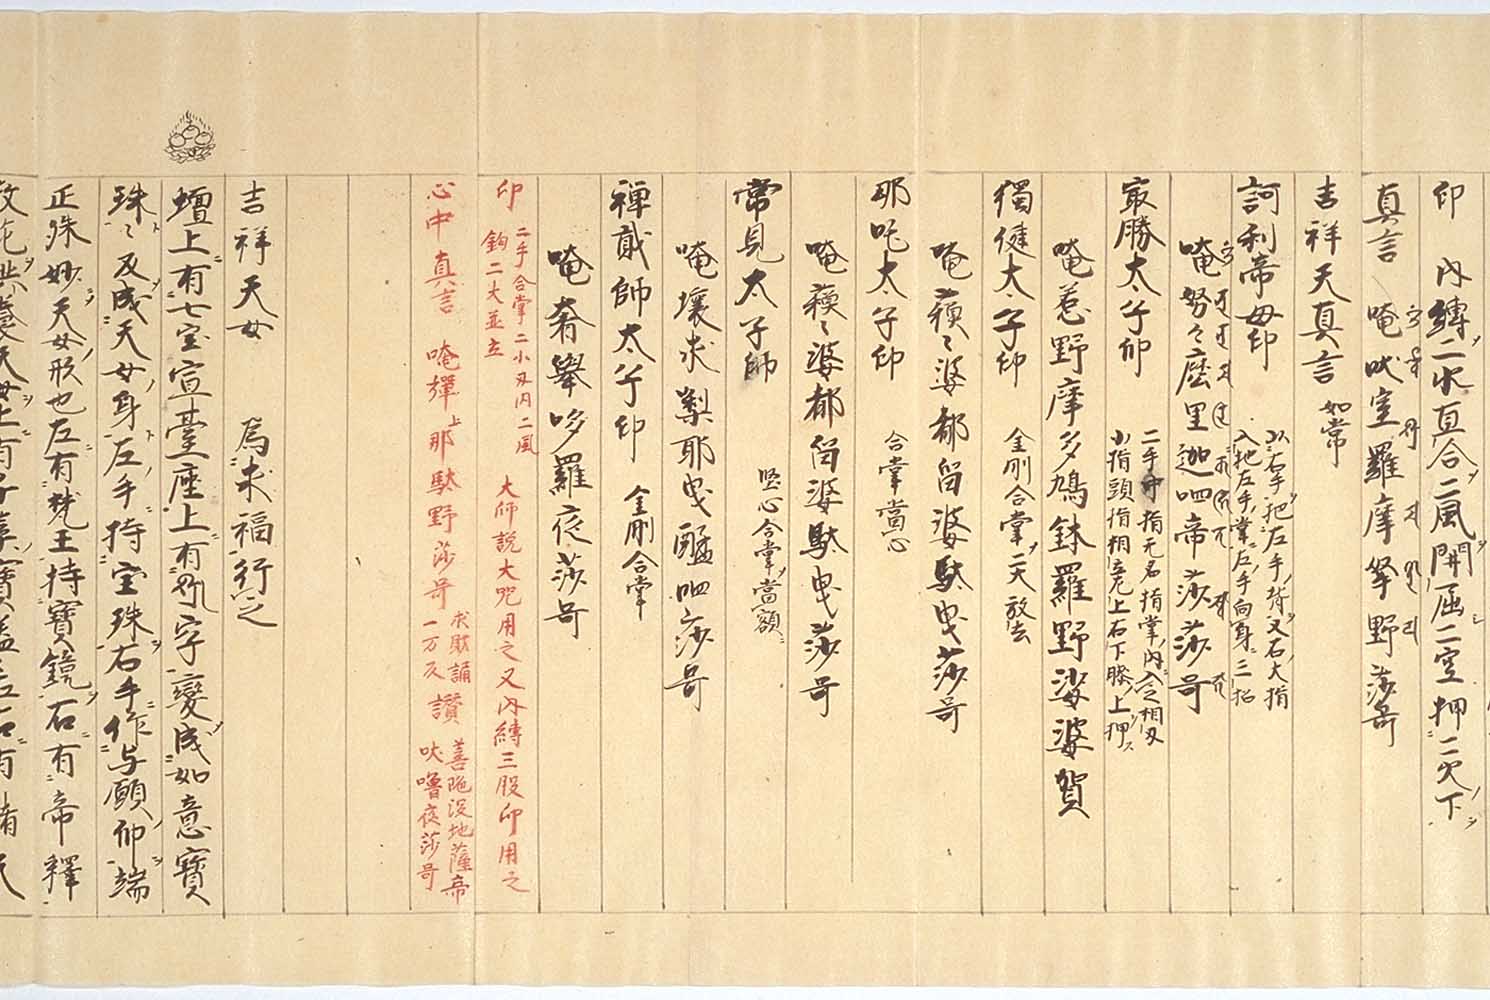 印 内縛二水直合二風開屈二空押二火下
真言 唵吠室羅摩拏野莎哥
吉祥天真言 如常
訶利帝母印 以右手把左手背又右大指
入把左手掌左手向身三招
唵努々麼里迦呬帝莎莎哥
最勝太子印 二手中指无名指掌内入之相叉
小指頭指相立尤上右下勝上押
唵惹野摩多鳩鉢羅野娑婆賀
獨健太子印 金剛合掌二天放去
唵蘓々婆都留婆馱曳莎哥
那吒太子印 合掌當心
唵蘓々婆都留婆馱曳莎哥
常見太子師 竪心合掌當額
唵壤求梨耶曳醯呬莎哥
禅貳師太子印 金剛合掌
唵奢擧哆羅夜莎哥
印 二手合掌二小叉内二風
鈎二大並立 大師説大咒用之又内縛三股印用之
心中真言 唵墠上那馱野莎哥 求財誦
一万反 讃 善陁没地薩帝
吠嚕夜莎哥
吉祥天女 為求福行之
壇上有七宝宣臺座上有字變成如意寶
珠々反成天女身左手持宝珠右手作与願印端
正殊妙天女形也左有梵王持寶鏡右有帝釋